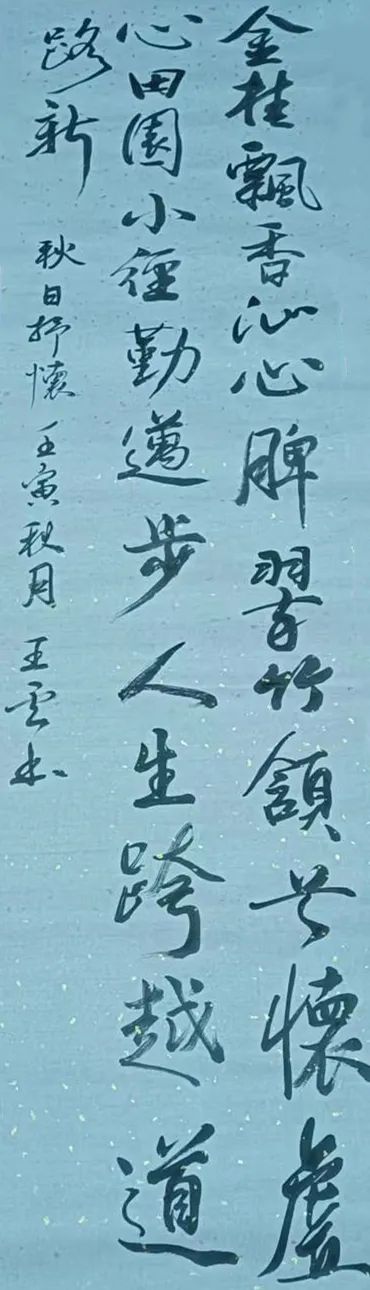 金桂飄香沁心脾翠竹頷首懷虛
心田園小徑勤邁步人生跨越道
路新 秋日抒懷 壬寅秋月 王云